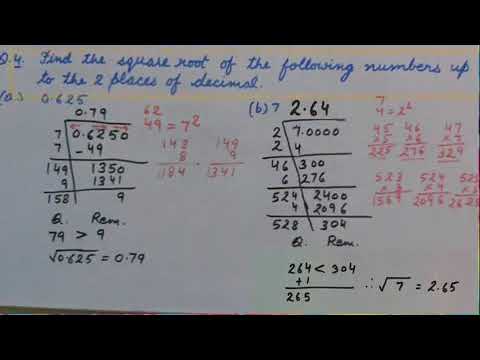 Q.4. Find the square root of the following numbers up
to the 2 places of decimal.
(a.) 0.625
0.79
7 0.6250
7 -49
149 1350
9 1341
158 9
Q. Rem.
79 > 9
√0.625 = 0.79
62
49 = 7²
148 149
8 9
1184 1341
(b) 7 2.64
2 7.0000
2 4
46 300
6 276
524 2400
4 2096
528 304
Q. Rem.
264 < 304
+1
265 ∴ √7 = 2.65
7
4 = 2²
45 46 47
×5 ×6 ×7
225 276 329
523 524 525
×3 ×4
1569 2096